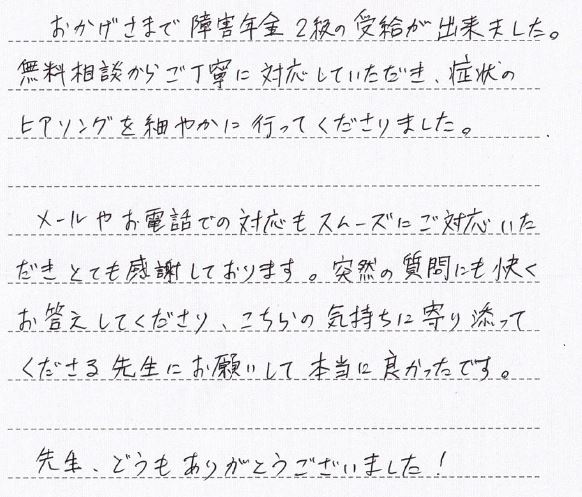 おかげさまで障害年金2級の受給が出来ました。
無料相談からご丁寧に対応していただき、症状の
ヒアリングを細やかに行ってくださりました。
メールやお電話での対応もスムーズにご対応いた
だきとても感謝しております。突然の質問にも快く
お答えしてくださり、こちらの気持ちに寄り添って
くださる先生にお願いして本当に良かったです。
先生、どうもありがとうございました!